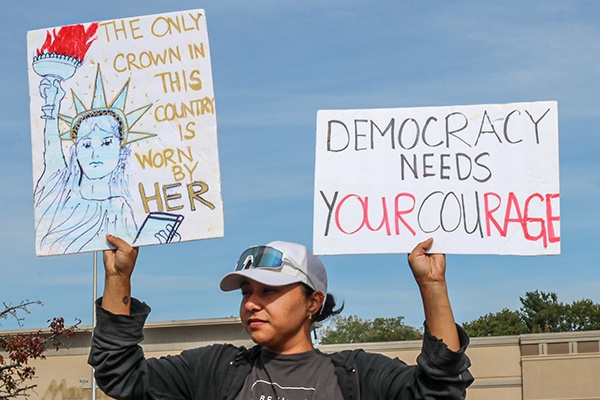 THE ONLY
CROWN IN
THIS
COUNTRY
IS
WORN
BY
HER
DEMOCRACY
NEEDS
YOUR COURAGE